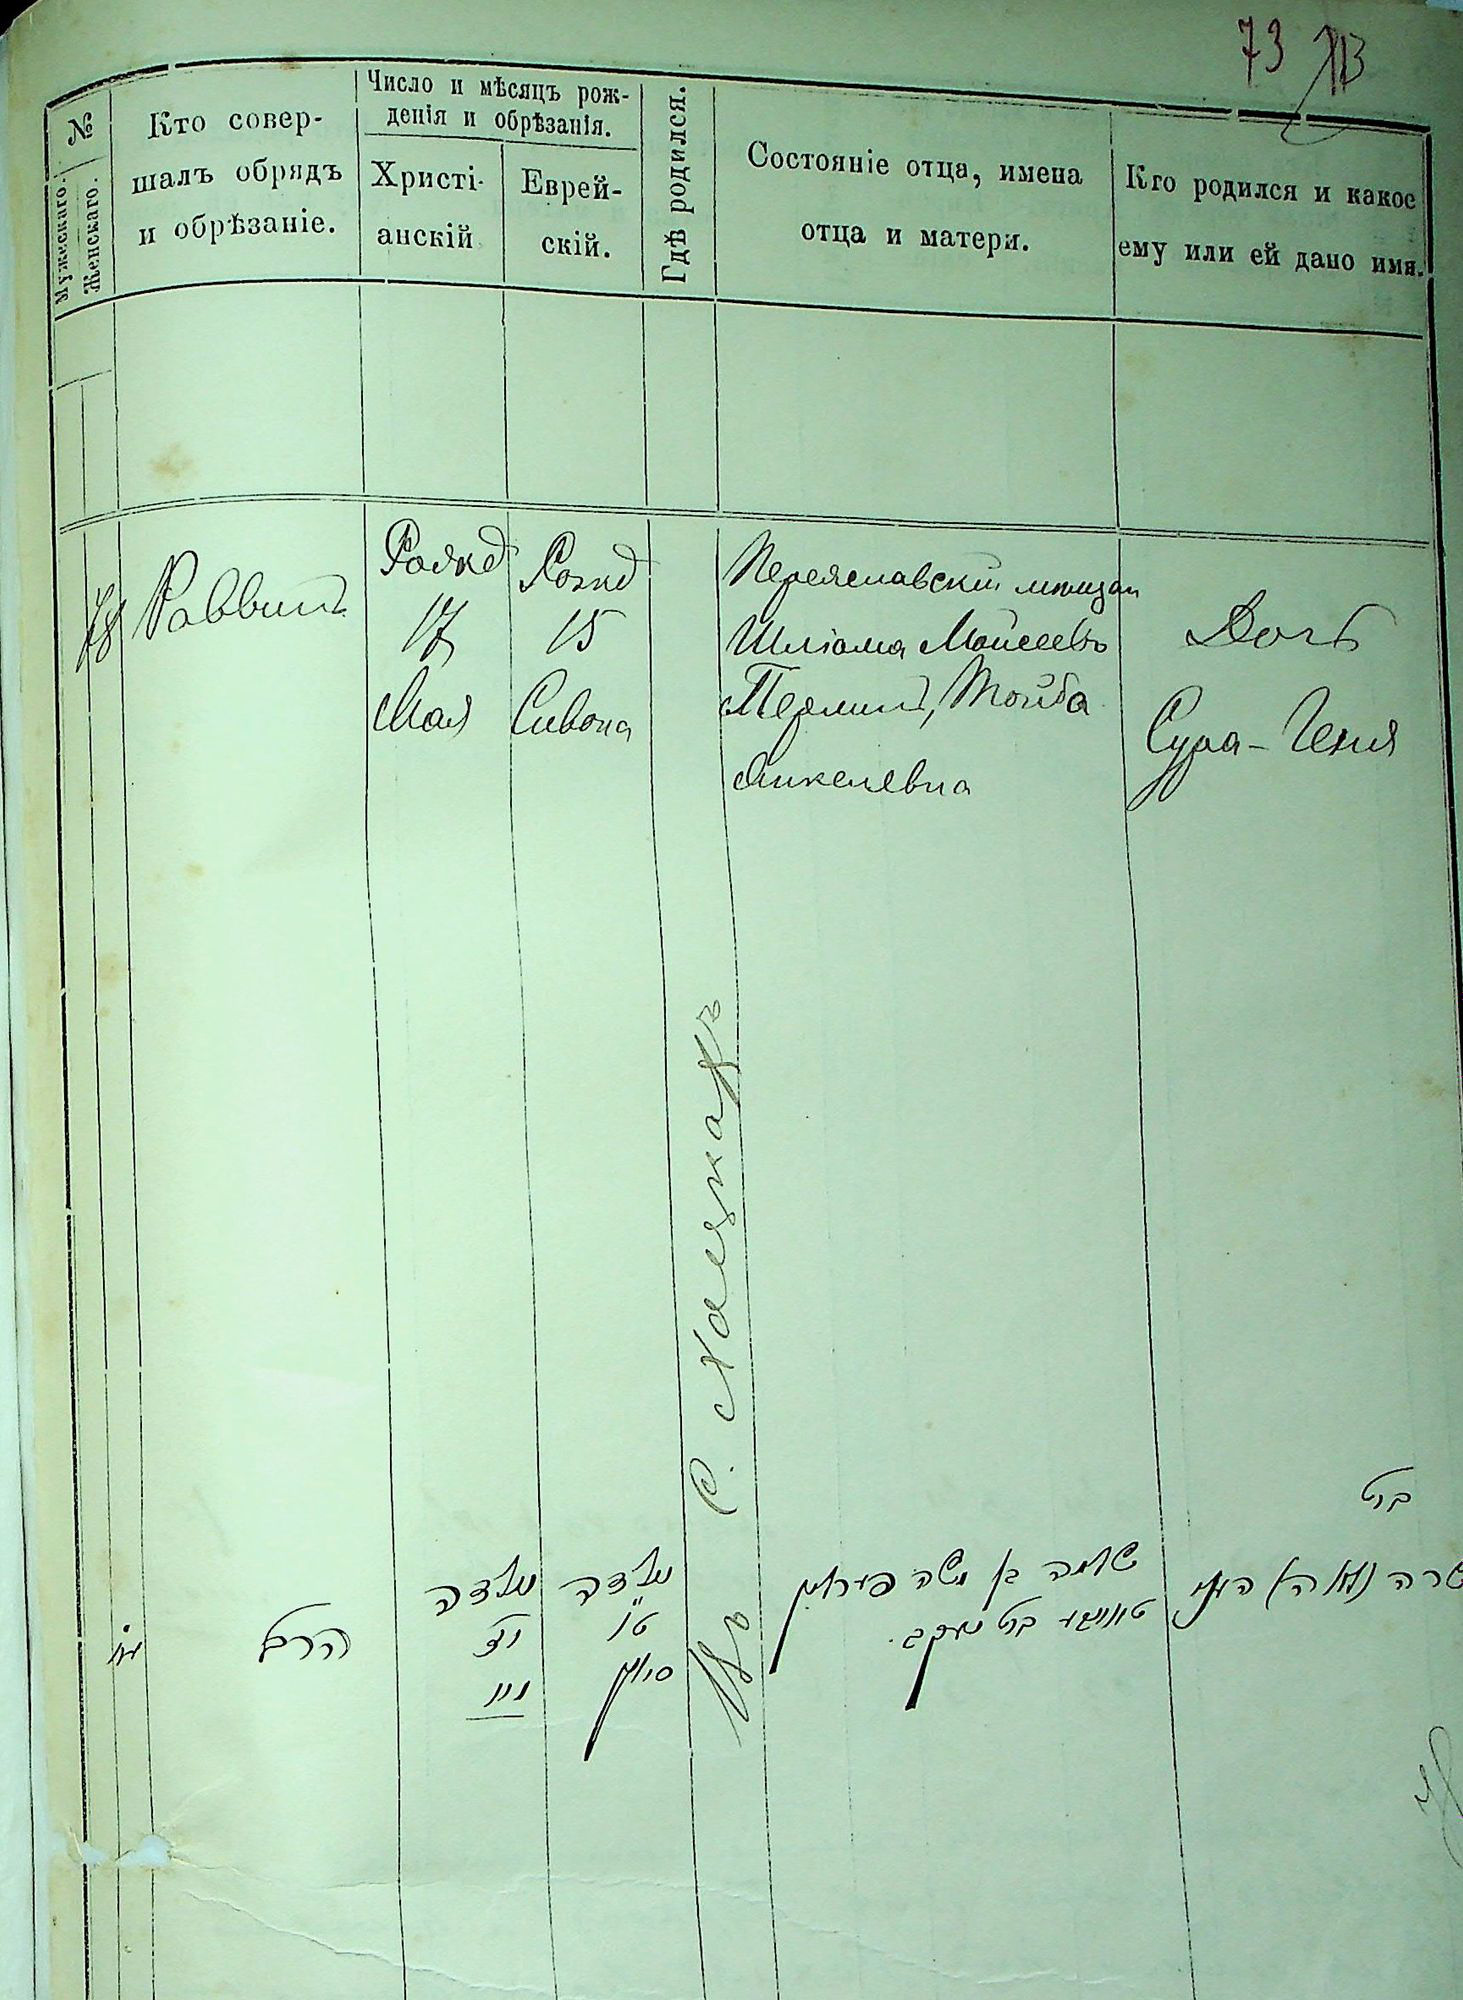 73
№
Мужескаго.
Женскаго.
Кто совер-
шалъ обрядъ
и обрѣзаніе.
Число и мѣсяцъ рож-
денія и обрѣзанія.
Христі-
анскій
Еврей-
скій.
Гдѣ родился.
Состояніе отца, имена
отца и матери.
Кто родился и какое
ему или ей дано имя.
78
Раввинъ
Рожд
17
Мая
Рожд
15
Сивона
Переяславскій мещан
Шліома Мойсеевъ
Перлинъ, Тойба
Янкелевна
Дочь
Сура-Геня
Въ С.
ברת
נולדה
נולדה
שלמה בן משה פערלין
שרה
הרב
יז
ט"ו
ברת יעקב.
מיי
סיון